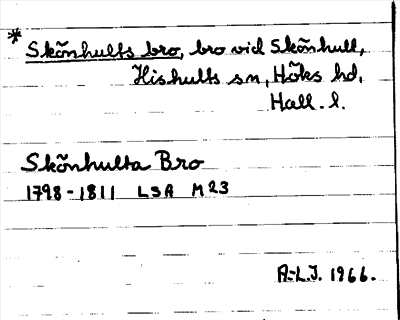 * Skönhults bro, bro vid Skönhult,
Hishults sn, Höks hd,
Hall. l.
Skönhulta Bro
1798-1811 LSA M23
A-L.J. 1966.